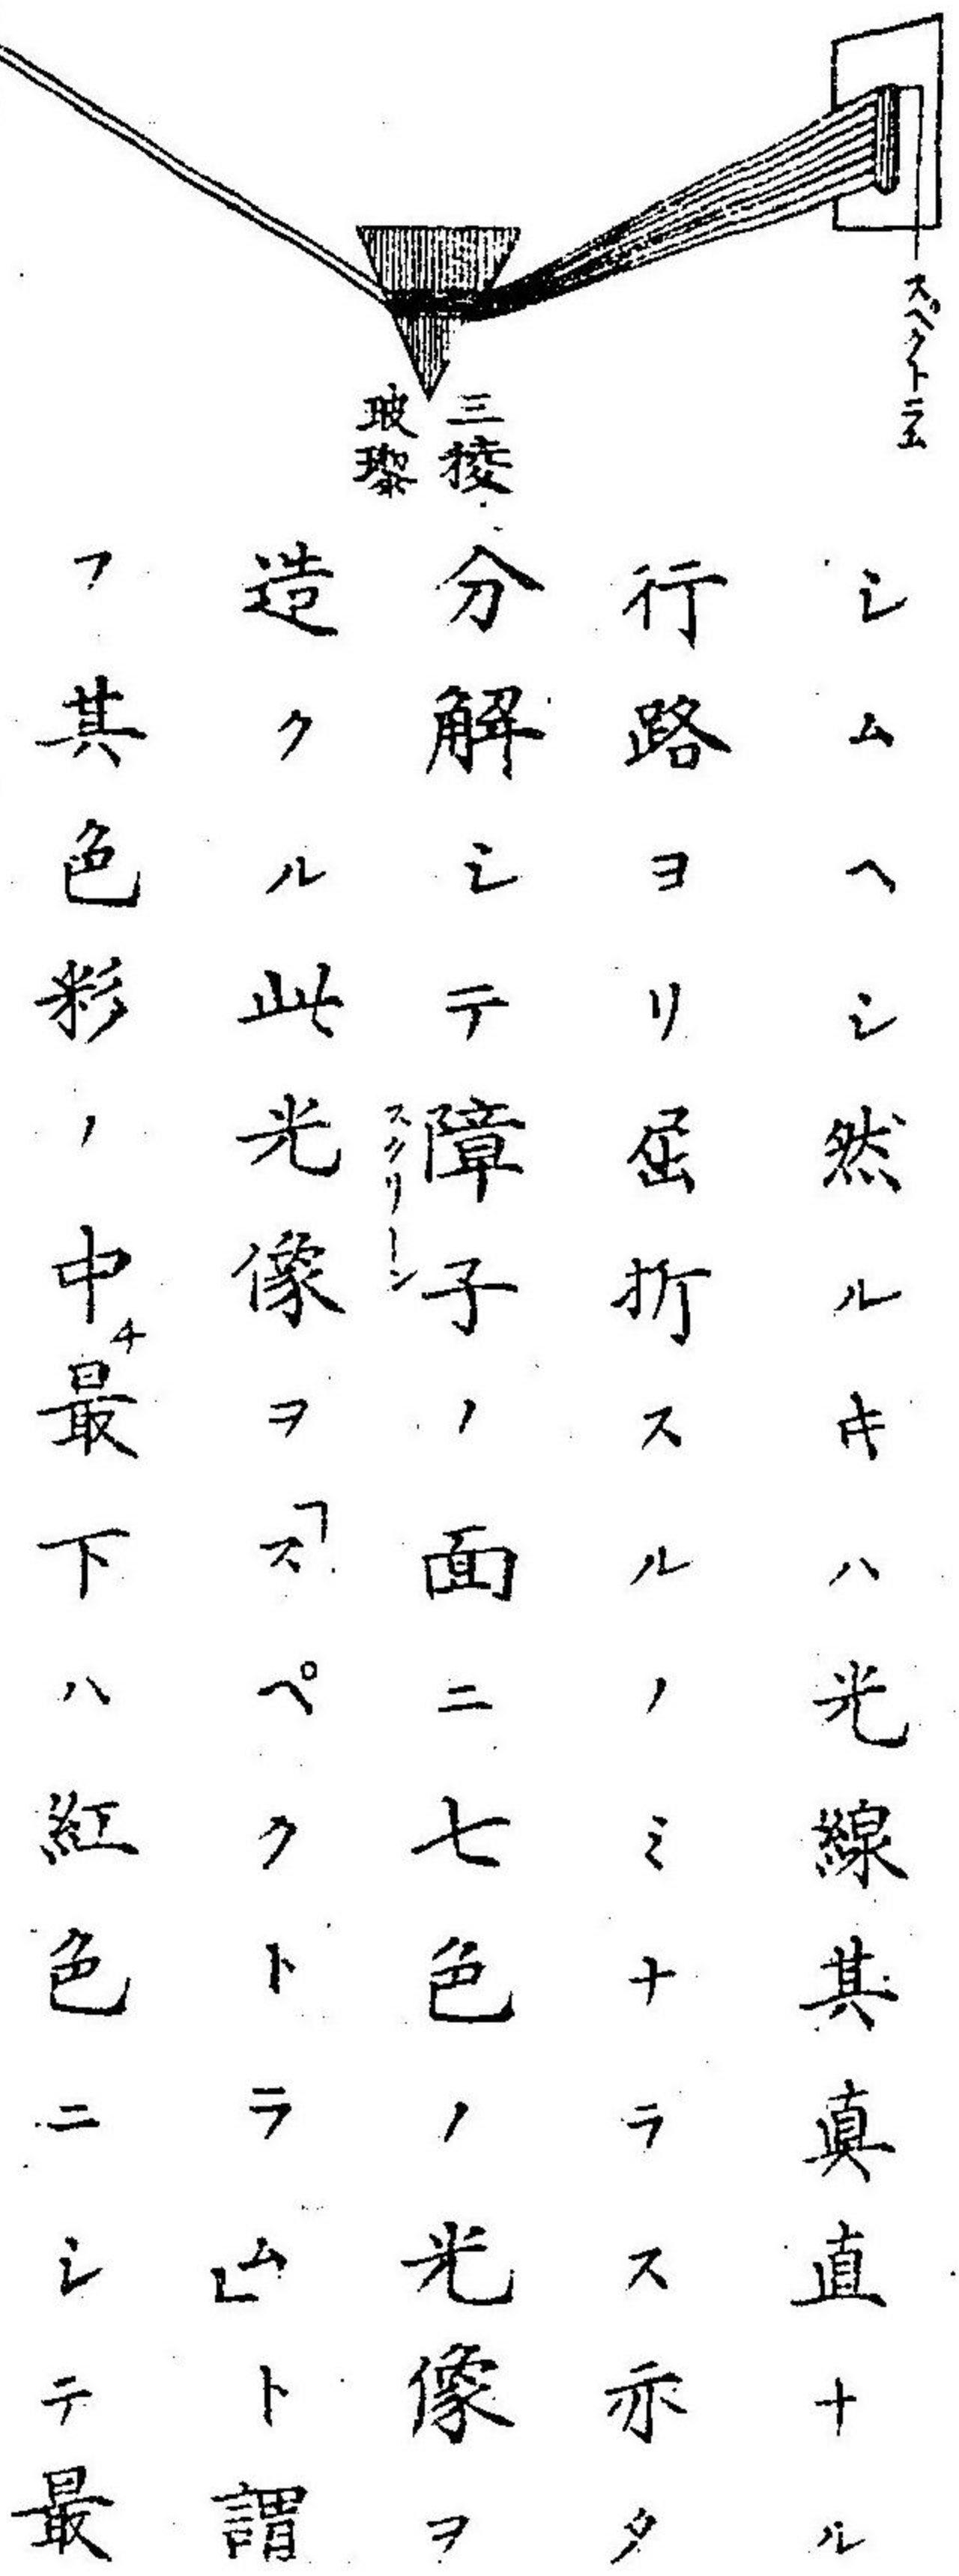 スペクトラム
三稜
玻瓈
シムヘシ然ルトキハ光線其真直ナル
行路ヨリ屈折スルノミナラス亦タ
分解シテ障子ノ面ニ七色ノ光像ヲ
スクリーン
造クル此光像ヲ「スペクトラム」ト謂
フ其色彩ノ中チ最下ハ紅色ニシテ最